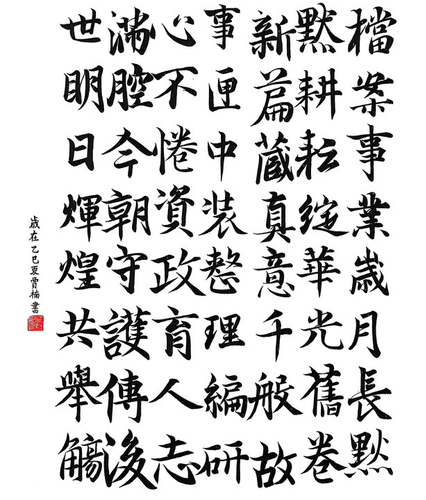 檔案事業歲月長黙
黙耕耘綻華光舊卷
新篇藏真意千般故
事匣中装整理編研
心不惓資政育人志
滿腔今朝守護傳後
世明日煇煌共舉觴
歲在乙巳夏賈楠書